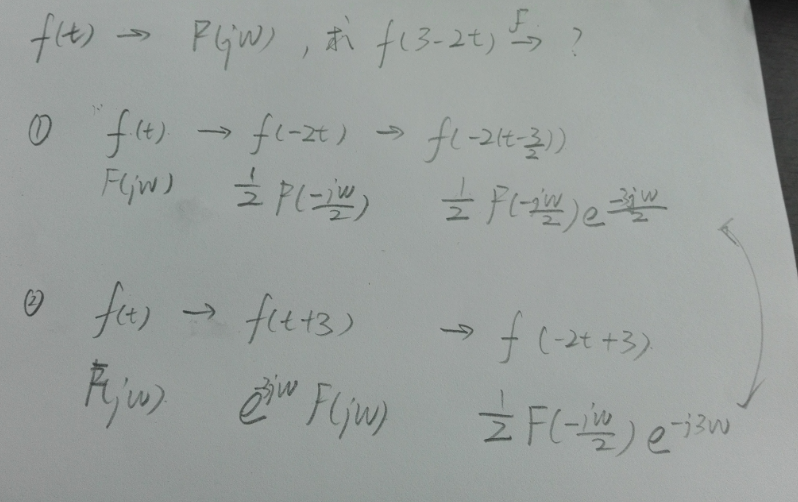 f(t) → F(jw), 求 f(3-2t) F→ ?
① f(t) → f(-2t) → f(-2(t-3/2))
F(jw) 1/2 F(-jw/2) 1/2 F(-jw/2) e^(-3jw/2)
② f(t) → f(t+3) → f(-2t+3)
F(jw) e^(3jw) F(jw) 1/2 F(-jw/2) e^(-j3w)